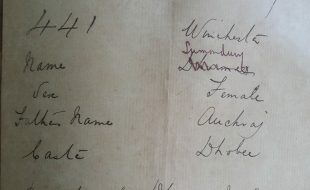 441 Winchester
Name
Sex Female
Father Name Auckraj
Caste Dhobee